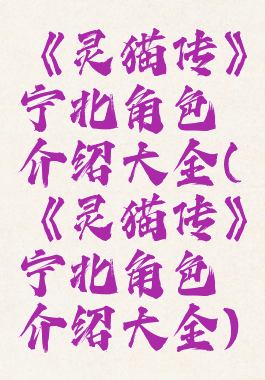 《灵猫传》
宁北角色
介绍大全(
《灵猫传》
宁北角色
介绍大全)